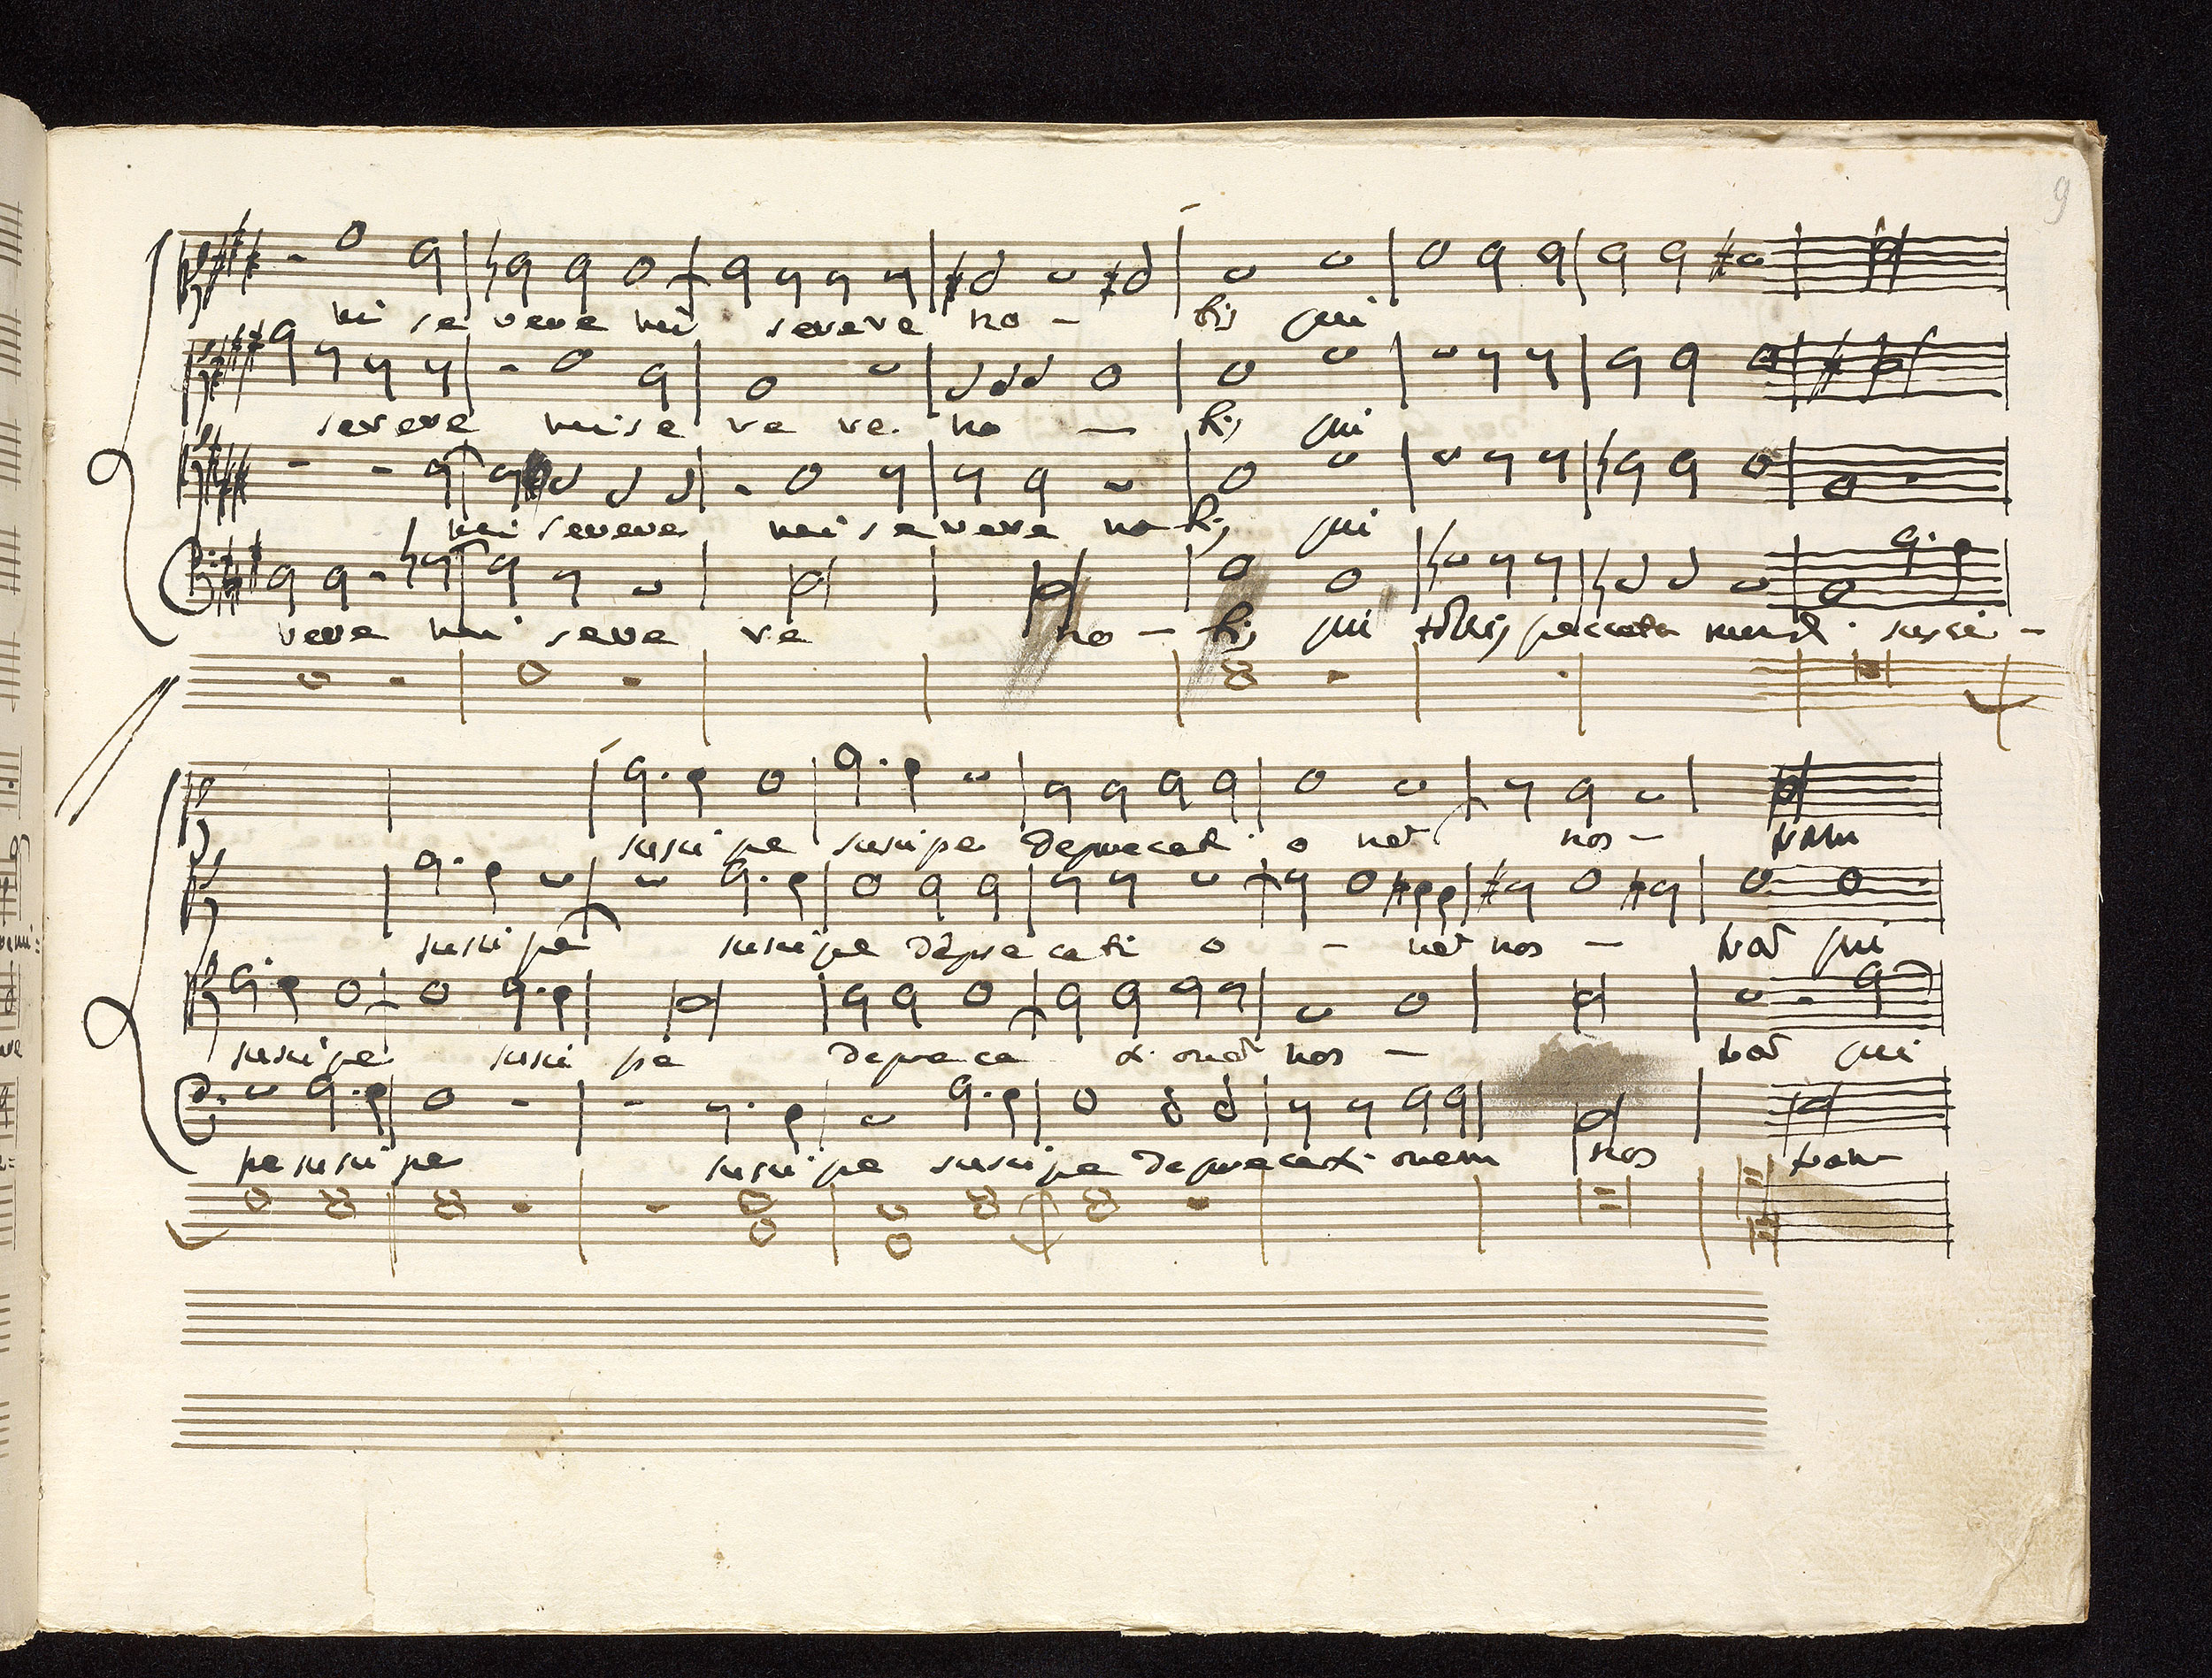 9
mi se rere mi serere no - bis qui
serere mise re re. no - bis qui
mi serere mi se rere no bis qui
rere mi sere re no - bis qui tollis peccata mundi. susci -
susci pe suscipe deprecati o nem nos - tram
susci pe suscipe depre cati o - nem nos - tram qui
suscipe susci pe depreca ti onem nos - tram qui
pe susci pe susci pe suscipe deprecati onem nos tram